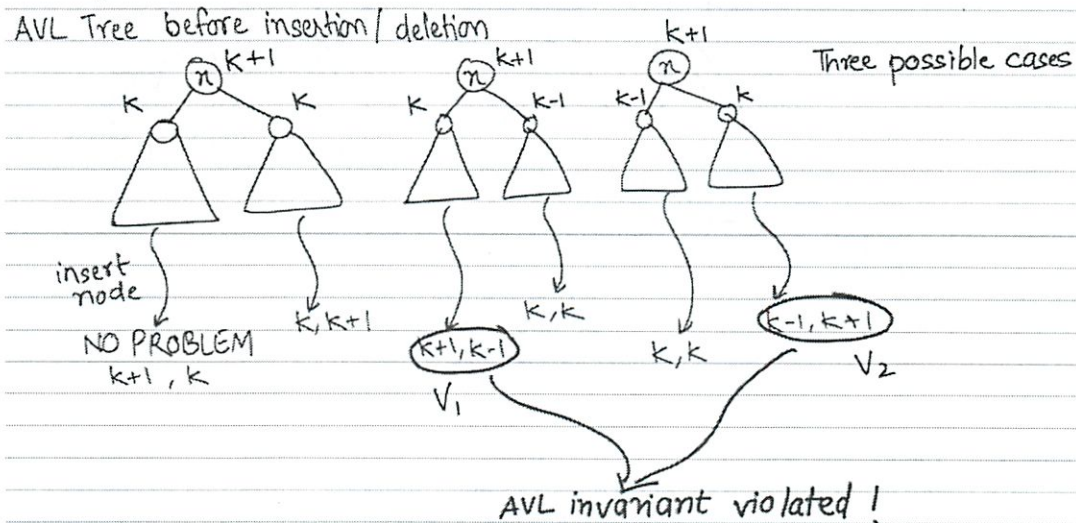 AVL Tree before insertion/deletion
Three possible cases
n K+1
K K
n K+1
K K-1
K+1
n
K-1 K
insert
node
NO PROBLEM
K+1, K
K, K+1
K+1, K-1
V1
K, K
K, K
K-1, K+1
V2
AVL invariant violated!